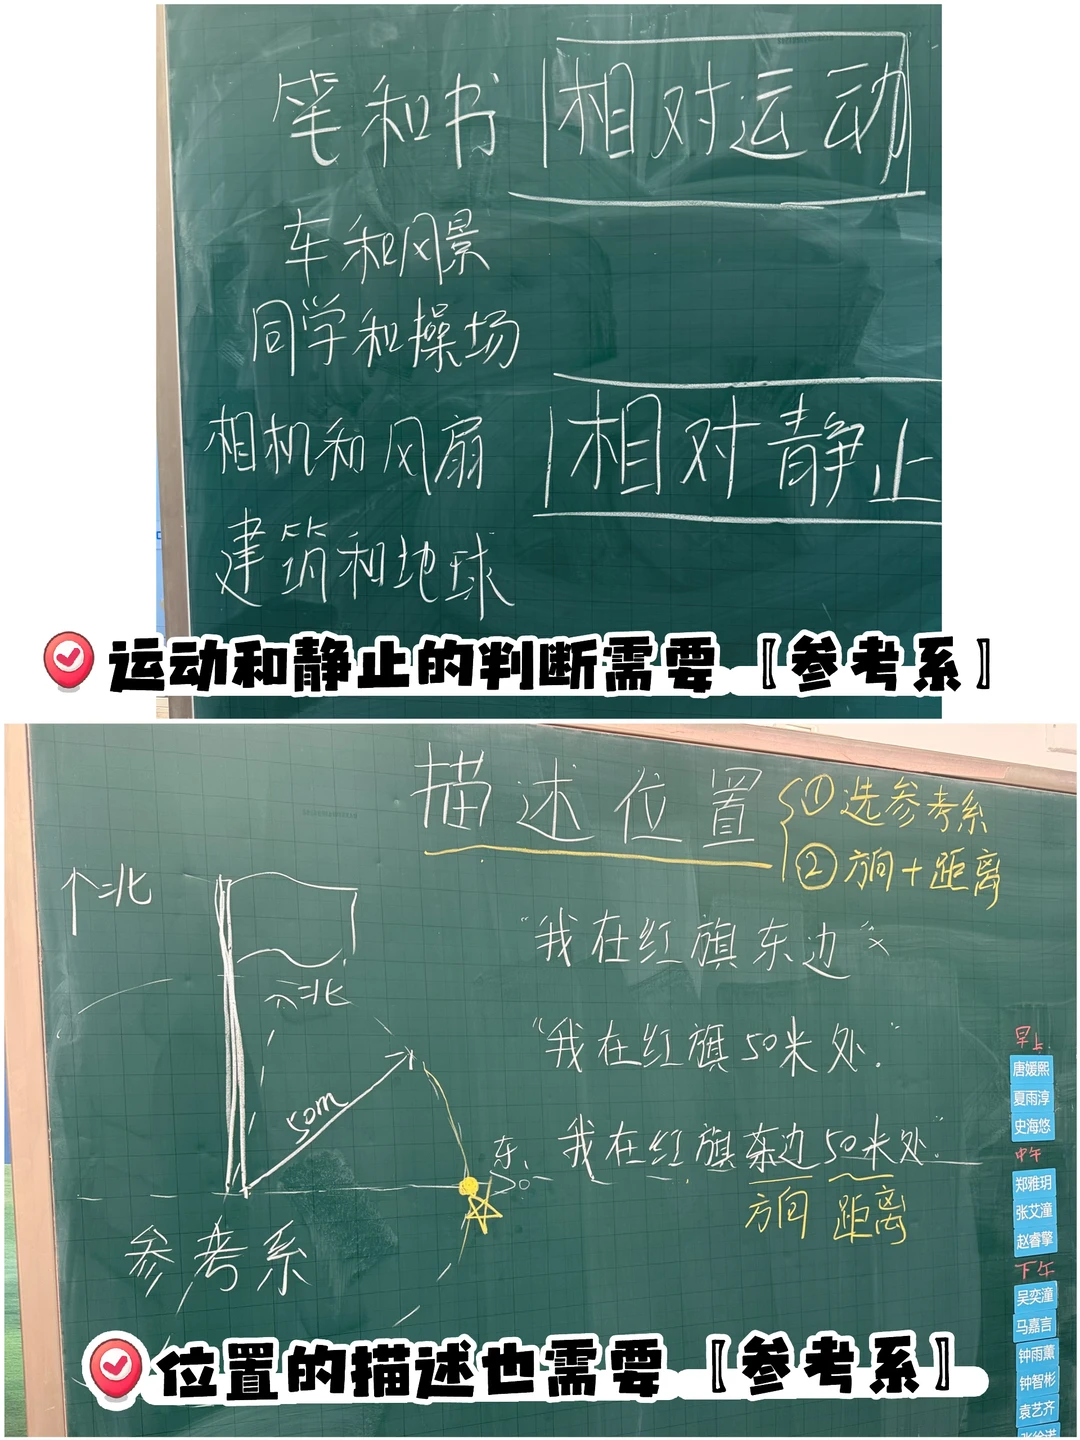 笔和书
相对运动
车和风景
同学和操场
相机和风扇
相对静止
建筑和地球
运动和静止的判断需要【参考系】
描述位置
①选参考系
②方向+距离
个北
"我在红旗东边"
北
"我在红旗50米处."
50m
东
我在红旗东边50米处."
方向 距离
参考系
早上
唐媛熙
夏雨淳
史海悠
中午
郑雅玥
张艾潼
赵睿擎
下午
吴奕潼
马嘉言
钟雨薰
钟智彬
袁艺齐
位置的描述也需要【参考系】